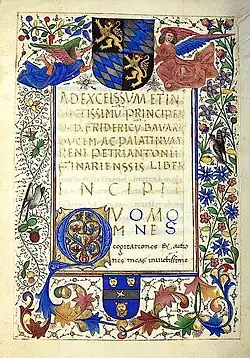 AD EXCELSSVM ET IN
VICTISSIMV PRINCIPEM
D. FRIDERICV BAVARI
DVCEM AC PALATINVM
RENI PETRI ANTONII
FINARIENSSIS LIBER
INCIPIT
QVOM O
MNES
cogitationes & actio
nes meas invictissime